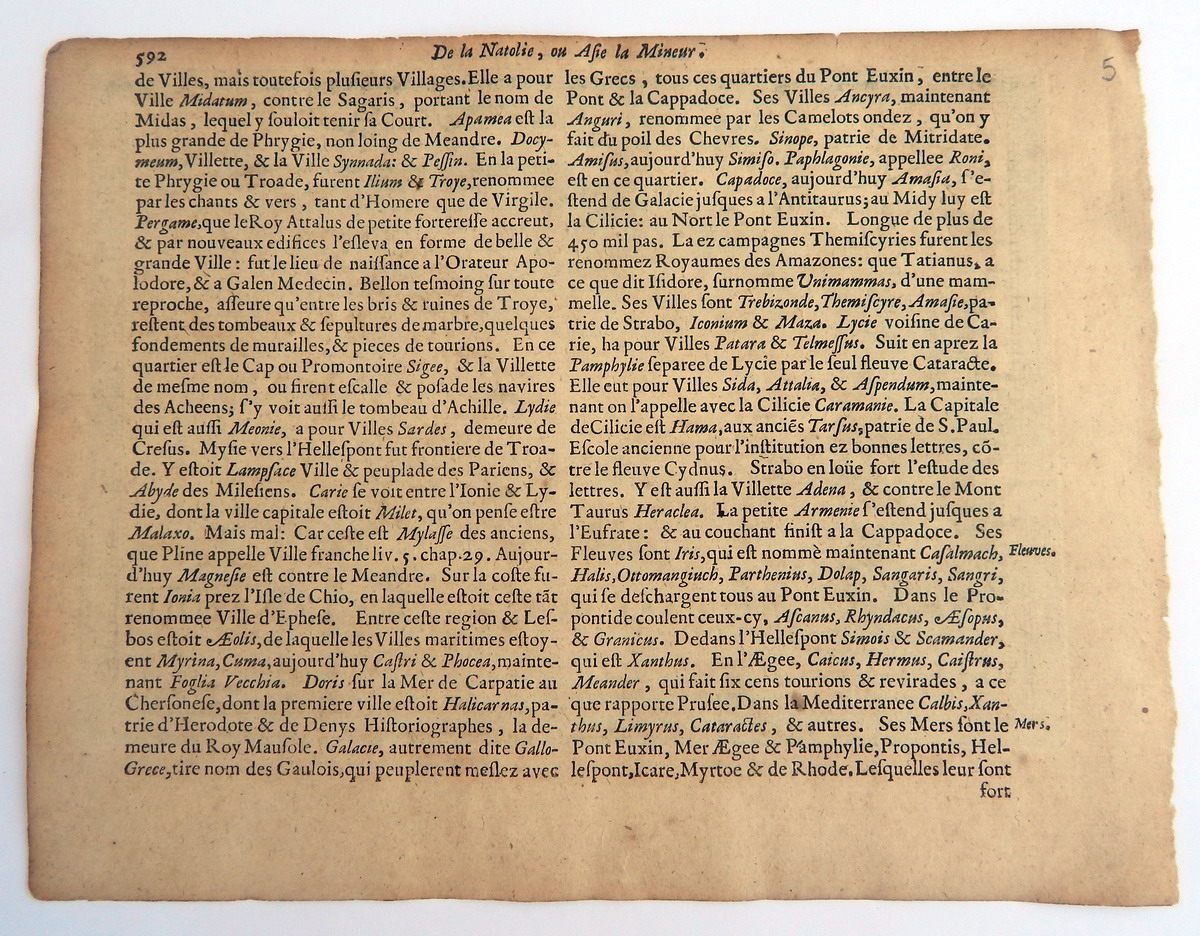 592
De la Natolie, ou Aſie la Mineur.
5
de Villes, mais toutefois pluſieurs Villages. Elle a pour
Ville Midatum, contre le Sagaris, portant le nom de
Midas, lequel y ſouloit tenir ſa Court. Apamea eſt la
plus grande de Phrygie, non loing de Meandre. Docy-
meum, Villette, & la Ville Synnada: & Peſſin. En la peti-
te Phrygie ou Troade, furent Ilium & Troye, renommee
par les chants & vers, tant d'Homere que de Virgile.
Pergame, que le Roy Attalus de petite fortereſſe accreut,
& par nouveaux edifices l'eſleva en forme de belle &
grande Ville: fut le lieu de naiſſance a l'Orateur Apo-
lodore, & a Galen Medecin. Bellon teſmoing ſur toute
reproche, aſſeure qu'entre les bris & ruines de Troye,
reſtent des tombeaux & ſepultures de marbre, quelques
fondements de murailles, & pieces de tourions. En ce
quartier eſt le Cap ou Promontoire Sigee, & la Villette
de meſme nom, ou firent eſcalle & poſade les navires
des Acheens; ſ'y voit auſſi le tombeau d'Achille. Lydie
qui eſt auſſi Meonie, a pour Villes Sardes, demeure de
Creſus. Myſie vers l'Helleſpont fut frontiere de Troa-
de. Y eſtoit Lampſace Ville & peuplade des Pariens, &
Abyde des Mileſiens. Carie ſe voit entre l'Ionie & Ly-
die, dont la ville capitale eſtoit Milet, qu'on penſe eſtre
Malaxo. Mais mal: Car ceſte eſt Mylaſſe des anciens,
que Pline appelle Ville franche liv. 5. chap. 29. Aujour-
d'huy Magneſie eſt contre le Meandre. Sur la coſte fu-
rent Ionia prez l'Iſle de Chio, en laquelle eſtoit ceſte tāt
renommee Ville d'Epheſe. Entre ceſte region & Leſ-
bos eſtoit Æolis, de laquelle les Villes maritimes eſtoy-
ent Myrina, Cuma, aujourd'huy Caſtri & Phocea, mainte-
nant Foglia Vecchia. Doris ſur la Mer de Carpatie au
Cherſoneſe, dont la premiere ville eſtoit Halicarnas, pa-
trie d'Herodote & de Denys Hiſtoriographes, la de-
meure du Roy Mauſole. Galacie, autrement dite Gallo-
Grece, tire nom des Gaulois, qui peuplerent meſlez avec
les Grecs, tous ces quartiers du Pont Euxin, entre le
Pont & la Cappadoce. Ses Villes Ancyra, maintenant
Anguri, renommee par les Camelots ondez, qu'on y
fait du poil des Chevres. Sinope, patrie de Mitridate.
Amiſus, aujourd'huy Simiſo. Paphlagonie, appellee Roni,
eſt en ce quartier. Capadoce, aujourd'huy Amaſia, ſ'e-
ſtend de Galacie juſques a l'Antitaurus; au Midy luy eſt
la Cilicie: au Nort le Pont Euxin. Longue de plus de
450 mil pas. La ez campagnes Themiſcyries furent les
renommez Royaumes des Amazones: que Tatianus, a
ce que dit Iſidore, ſurnomme Unimammas, d'une mam-
melle. Ses Villes ſont Trebizonde, Themiſcyre, Amaſie, pa-
trie de Strabo, Iconium & Maza. Lycie voiſine de Ca-
rie, ha pour Villes Patara & Telmeſſus. Suit en aprez la
Pamphylie ſeparee de Lycie par le ſeul fleuve Cataracte.
Elle eut pour Villes Sida, Attalia, & Aſpendum, mainte-
nant on l'appelle avec la Cilicie Caramanie. La Capitale
de Cilicie eſt Hama, aux anciēs Tarſus, patrie de S. Paul.
Eſcole ancienne pour l'inſtitution ez bonnes lettres, cō-
tre le fleuve Cydnus. Strabo en loüe fort l'eſtude des
lettres. Y eſt auſſi la Villette Adena, & contre le Mont
Taurus Heraclea. La petite Armenie ſ'eſtend juſques a
l'Eufrate: & au couchant finiſt a la Cappadoce. Ses
Fleuves ſont Iris, qui eſt nommè maintenant Caſalmach, Fleuves.
Halis, Ottomangiuch, Parthenius, Dolap, Sangaris, Sangri,
qui ſe deſchargent tous au Pont Euxin. Dans le Pro-
pontide coulent ceux-cy, Aſcanus, Rhyndacus, Æſopus,
& Granicus. Dedans l'Helleſpont Simois & Scamander,
qui eſt Xanthus. En l'Ægee, Caicus, Hermus, Caiſtrus,
Meander, qui fait ſix cens tourions & revirades, a ce
que rapporte Pruſee. Dans la Mediterranee Calbis, Xan-
thus, Limyrus, Cataractes, & autres. Ses Mers ſont le Mers.
Pont Euxin, Mer Ægee & Pamphylie, Propontis, Hel-
leſpont, Icare, Myrtoe & de Rhode. Leſquelles leur ſont
fort